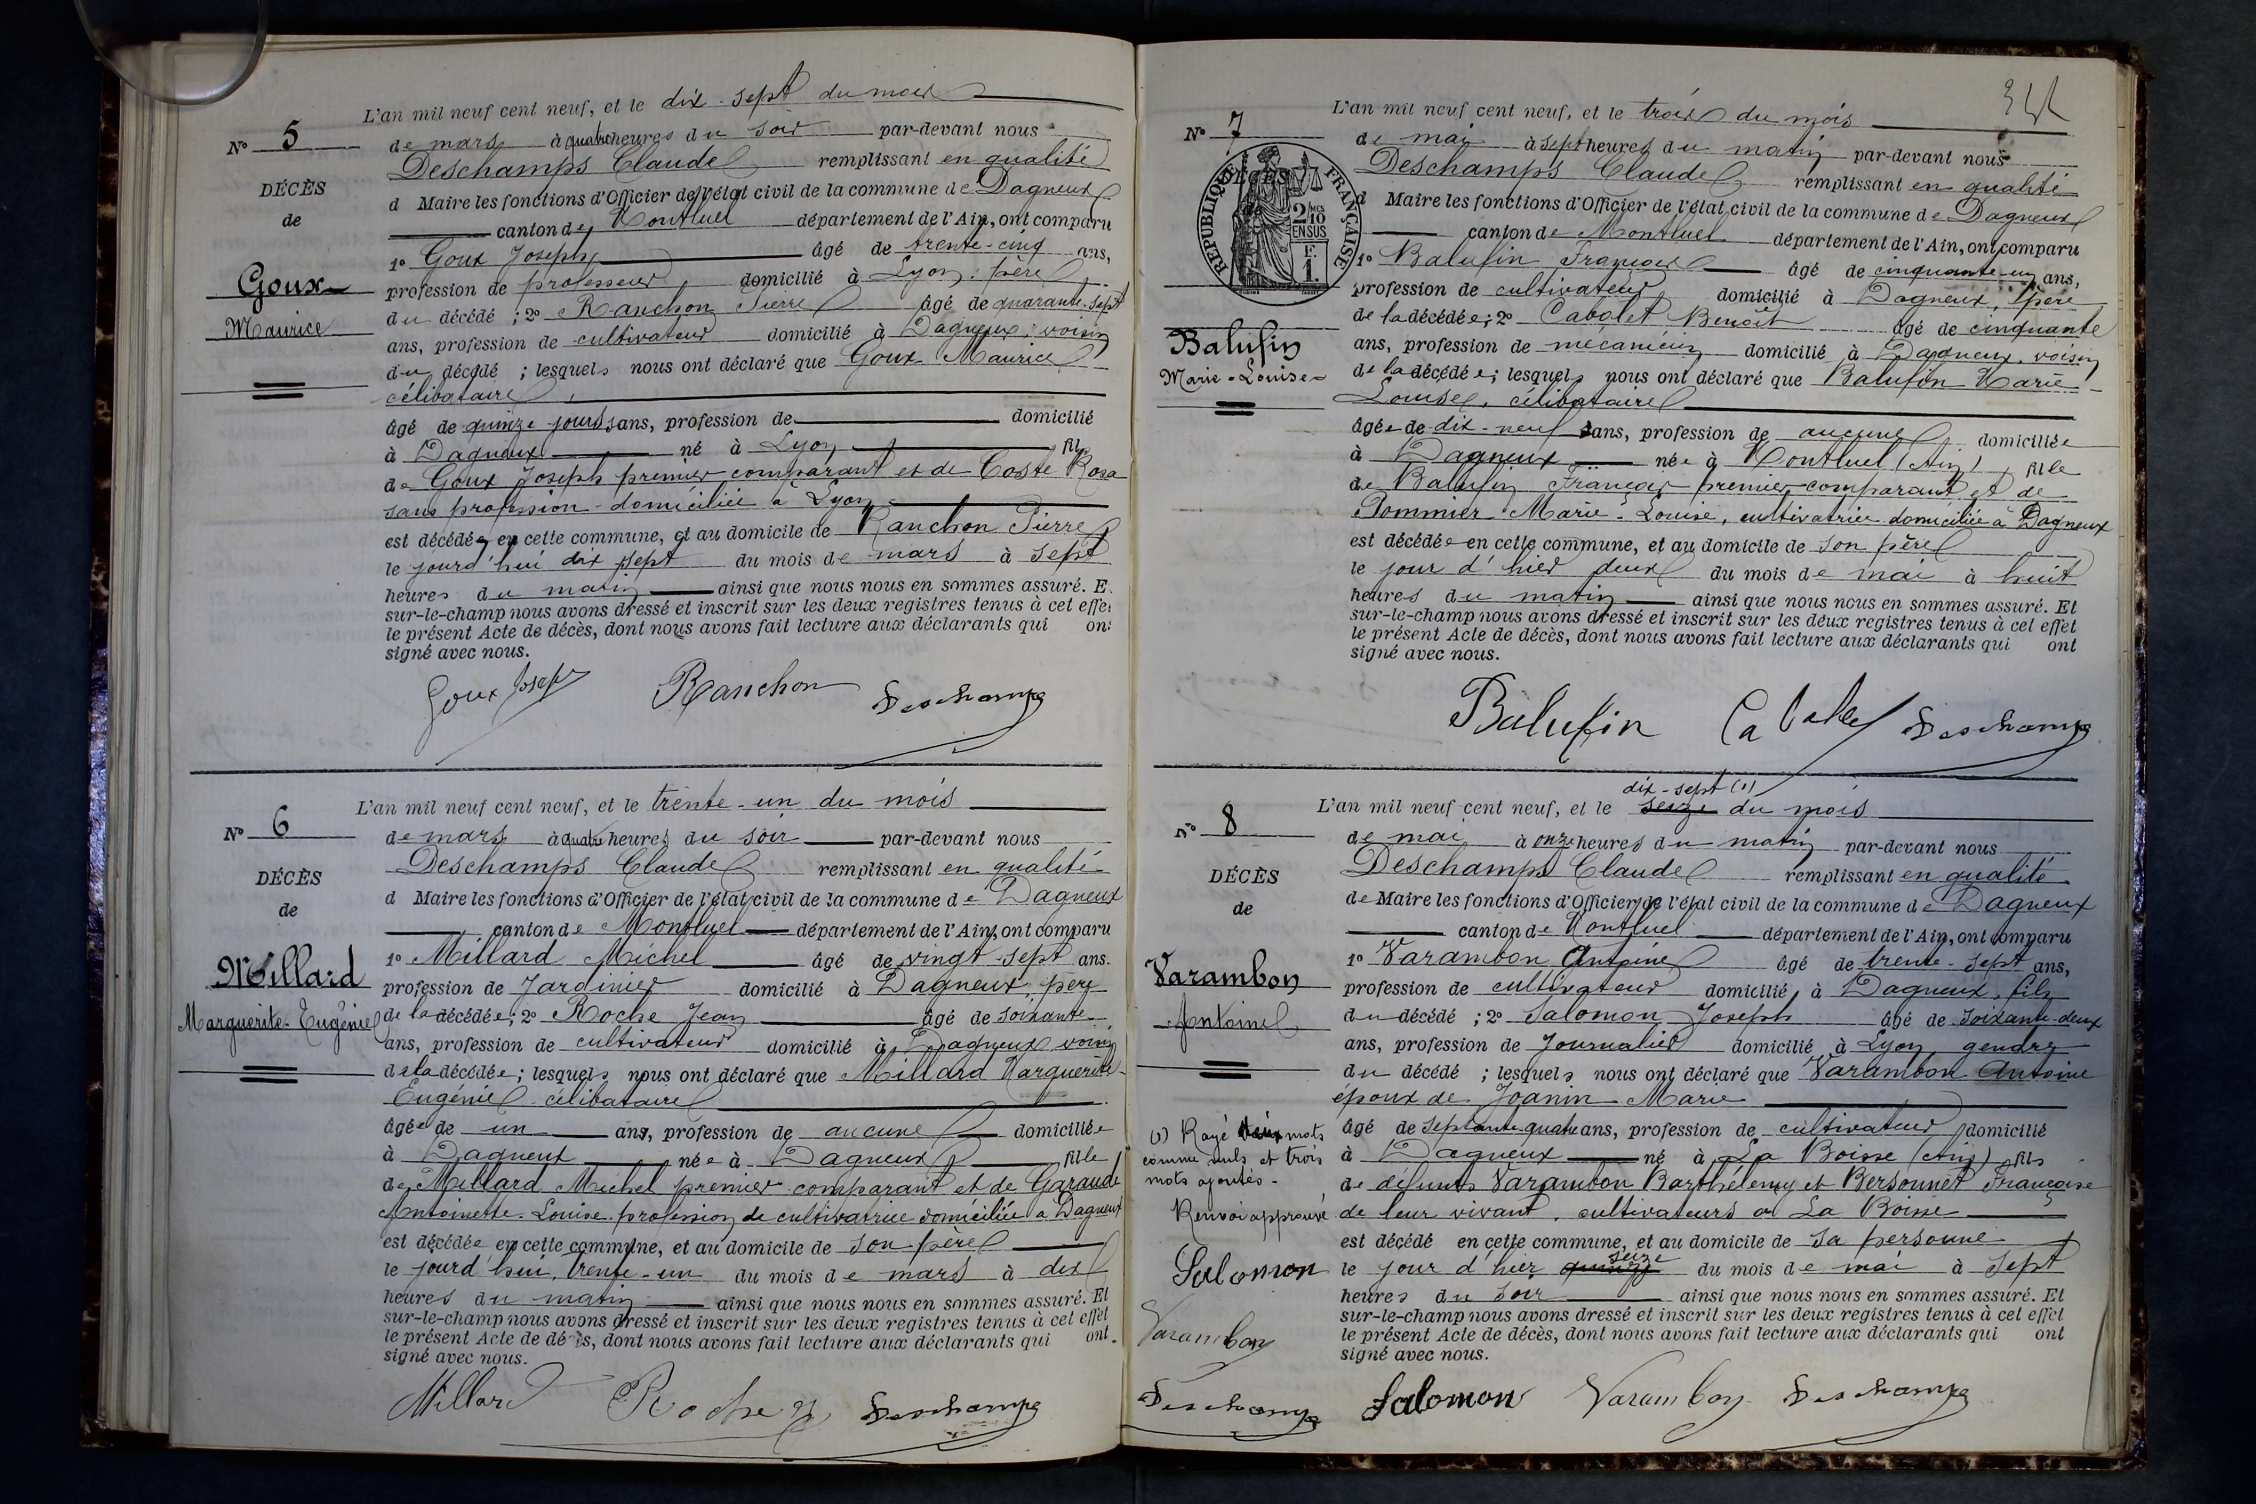 L'an mil neuf cent neuf, et le dix-sept du mois
N° 5
de mars à quatre heures du soir par-devant nous
Deschamps Claude remplissant en qualité
DÉCÈS
d Maire les fonctions d'Officier de l'état civil de la commune de Dagneux
de
canton de Montluel département de l'Ain, ont comparu
1° Goux Joseph âgé de trente-cinq ans,
Goux
profession de professeur domicilié à Lyon : père
Maurice
du décédé ; 2° Ranchon Pierre âgé de quarante-sept
ans, profession de cultivateur domicilié à Dagneux : voisin
du décédé ; lesquels nous ont déclaré que Goux Maurice
célibataire,
âgé de quinze jours ans, profession de domicilié
à Dagneux né à Lyon fils
de Goux Joseph premier comparant et de Coste Rosa
sans profession - domiciliée à Lyon
est décédé en cette commune, et au domicile de Ranchon Pierre
le jourd'hui dix sept du mois de mars à sept
heures du matin ainsi que nous nous en sommes assuré. E
sur-le-champ nous avons dressé et inscrit sur les deux registres tenus à cet effet
le présent Acte de décès, dont nous avons fait lecture aux déclarants qui ont
signé avec nous.
Goux Joseph Ranchon Deschamps
L'an mil neuf cent neuf, et le trente-un du mois
N° 6
de mars à quatre heures du soir par-devant nous
Deschamps Claude remplissant en qualité
DÉCÈS
d Maire les fonctions d'Officier de l'état civil de la commune de Dagneux
de
canton de Montluel département de l'Ain, ont comparu
1° Millard Michel âgé de vingt-sept ans.
Millard
profession de Jardinier domicilié à Dagneux, père
Marguerite-Eugénie
de la décédée ; 2° Roche Jean âgé de soixante
ans, profession de cultivateur domicilié à Dagneux voisin
de la décédée ; lesquels nous ont déclaré que Millard Marguerite-
Eugénie célibataire
âgée de un ans, profession de aucune domiciliée
à Dagneux née à Dagneux fille
de Millard Michel premier comparant et de Garaude
Antoinette-Louise profession de cultivatrice domiciliée à Dagneux
est décédée en cette commune, et au domicile de son père
le jourd'hui, trente-un du mois de mars à dix
heures du matin ainsi que nous nous en sommes assuré. Et
sur-le-champ nous avons dressé et inscrit sur les deux registres tenus à cet effet
le présent Acte de décès, dont nous avons fait lecture aux déclarants qui ont
signé avec nous.
Millard Roche Deschamps
L'an mil neuf cent neuf, et le trois du mois
N° 7
de mai à sept heures du matin par-devant nous
Deschamps Claude remplissant en qualité
RÉPUBLIQUE FRANÇAISE
2/10 EN SUS
d Maire les fonctions d'Officier de l'état civil de la commune de Dagneux
canton de Montluel département de l'Ain, ont comparu
1° Balufin François âgé de cinquante-un ans,
profession de cultivateur domicilié à Dagneux, père
de la décédée ; 2° Cabolet Benoît âgé de cinquante
Balufin
Marie-Louise
ans, profession de mécanicien domicilié à Dagneux, voisin
de la décédée ; lesquels nous ont déclaré que Balufin Marie
Louise, célibataire
âgée de dix-neuf ans, profession de aucune domiciliée
à Dagneux née à Montluel (Ain) fille
de Balufin François premier comparant et de
Pommier Marie-Louise, cultivatrice domiciliée à Dagneux
est décédée en cette commune, et au domicile de son père
le jour d'hier deux du mois de mai à huit
heures du matin ainsi que nous nous en sommes assuré. Et
sur-le-champ nous avons dressé et inscrit sur les deux registres tenus à cet effet
le présent Acte de décès, dont nous avons fait lecture aux déclarants qui ont
signé avec nous.
Balufin Deschamps
dix-sept (1)
L'an mil neuf cent neuf, et le seize du mois
N° 8
de mai à onze heures du matin par-devant nous
Deschamps Claude remplissant en qualité
DÉCÈS
de Maire les fonctions d'Officier de l'état civil de la commune de Dagneux
de
canton de Montluel département de l'Ain, ont comparu
1° Varambon Antoine âgé de trente-sept ans,
Varambon
profession de cultivateur domicilié à Dagneux, fils
Antoine
du décédé ; 2° Salomon Joseph âgé de soixante-deux
ans, profession de Journalier domicilié à Lyon gendre
du décédé ; lesquels nous ont déclaré que Varambon Antoine
époux de Joanin Marie
âgé de septante quatre ans, profession de cultivateur domicilié
à Dagneux né à La Boisse (Ain) fils
de défunts Varambon Barthélemy et Bersonnet Françoise
de leur vivant, cultivateurs à La Boisse
est décédé en cette commune, et au domicile de sa personne
seize
le jour d'hier quinze du mois de mai à sept
heures du soir ainsi que nous nous en sommes assuré. Et
sur-le-champ nous avons dressé et inscrit sur les deux registres tenus à cet effet
le présent Acte de décès, dont nous avons fait lecture aux déclarants qui ont
signé avec nous.
Salomon Varambon Deschamps
(1) Rayé deux mots
comme nuls et trois
mots ajoutés -
Renvoi approuvé
Salomon
Varambon
Deschamps